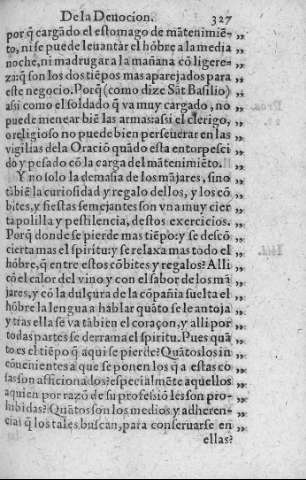 De la Deuocion. 327
por q̃ cargãdo el estomago de mãtenimiẽ-
to, ni se puede leuantar el hõbre a la media
noche, ni madrugar a la mañana cõ ligere-
za: q̃ son los dos tiẽpos mas aparejados para
este negocio. Porq̃ (como dize Sãt Basilio)
assi como el soldado q̃ va muy cargado, no
puede menear biẽ las armas: assi el clerigo,
o religioso no puede bien perseuerar en las
vigilias de la Oraciõ quãdo esta entorpesci
do y pesado cõ la carga del mãtenimiẽto.
Y no solo la demasia de los mãjares, sino
tãbiẽ la curiosidad y regalo dellos, y los cõ
bites, y fiestas semejantes son vna muy cier
ta polilla y pestilencia, destos exercicios.
Porq̃ donde se pierde mas tiẽpo: y se descõ
cierta mas el spiritu: y se relaxa mas todo el
hõbre, q̃ entre estos cõbites y regalos? Alli
cõ el calor del vino y con el sabor de los mã
jares, y cõ la dulçura de la cõpañia suelta el
hõbre la lengua a hablar quãto se le antoja
y tras ella se va tãbien el coraçon, y alli por
todas partes se derrama el spiritu. Pues quã
to es el tiẽpo q̃ aqui se pierde? Quãtos los in
cõuenientes a que se ponen los q̃ a estas co
sas son afficionados? especialmẽte aquellos
a quien por razõ de su professiõ les son pro-
hibidas? Quãtos son los medios y adheren-
cias q̃ los tales buscan, para conseruarse en
ellas?